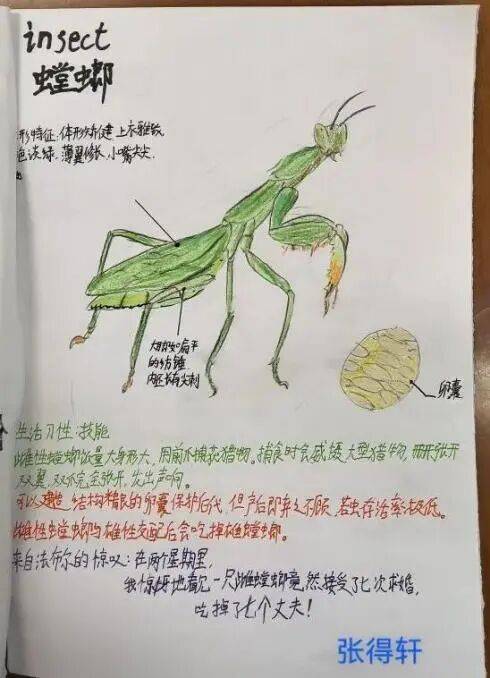 insect
螳螂
形特征:体形矫健 上衣雅致
色淡绿,薄翼修长,小嘴尖尖.
大腿如扁平
的纺锤
内还长有尖刺
卵囊
生活习性 技能
雌性螳螂饭量大身形大,用前爪捕获猎物。捕食时会威慑大型猎物,张开
双翼,双爪完全张开,发出声响。
可以建造结构精良的卵囊保护后代,但产后即弃之不顾,若虫存活率极低。
雌性螳螂与雄性交配后会吃掉雄螳螂。
来自法布尔的惊叹:在两个星期里,
我惊讶地看见一只雌螳螂竟然接受了七次求婚,
吃掉了七个丈夫!
张得轩